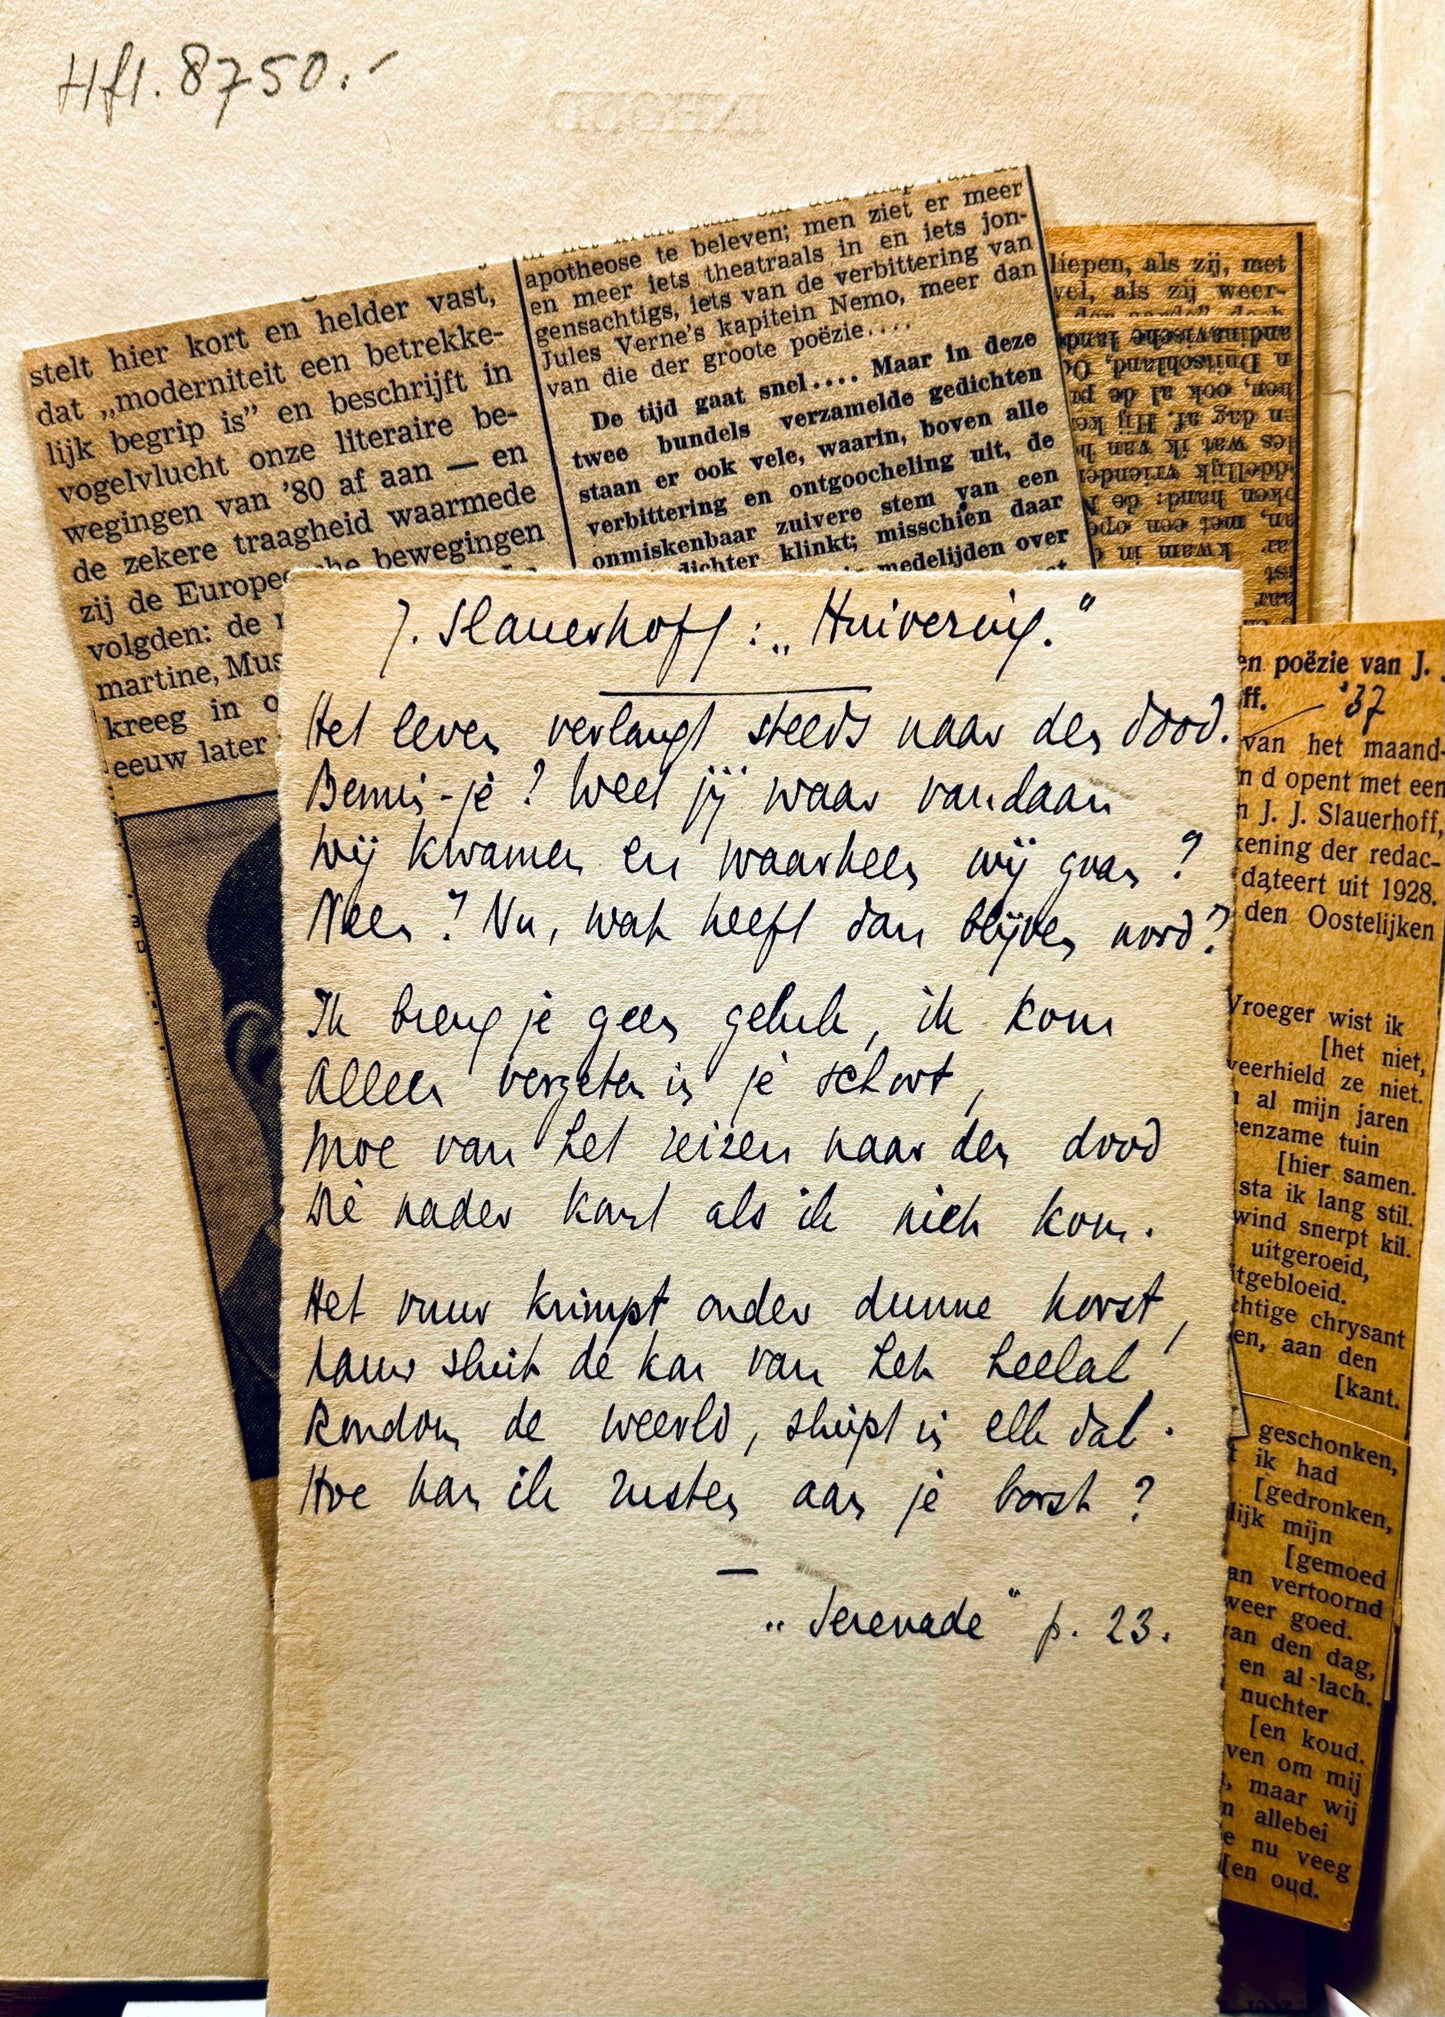 Hfl. 8750.-
INHOUD
stelt hier kort en helder vast,
dat „moderniteit een betrekke-
lijk begrip is” en beschrijft in
vogelvlucht onze literaire be-
wegingen van ’80 af aan — en
de zekere traagheid waarmede
zij de Europe che bewegingen
volgden: de
martine, Mus
kreeg in o
eeuw later
apotheose te beleven; men ziet er meer
en meer iets theatraals in en iets jon-
gensachtigs, iets van de verbittering van
Jules Verne’s kapitein Nemo, meer dan
van die der groote poëzie....
De tijd gaat snel.... Maar in deze
twee bundels verzamelde gedichten
staan er ook vele, waarin, boven alle
verbittering en ontgoocheling uit, de
onmiskenbaar zuivere stem van een
dichter klinkt; misschien daar
medelijden over
liepen, als zij, met
vel, als zij weer-
andinavische land
n Duitschland, O
hen, ook al de pu
en dag af. Hij ke
les wat ik van h
ddellijk vriendel
oken hand: de
an, met een ope
ar kwam in
J. Slauerhoff: „Huivering.”
Het leven verlangt steeds naar den dood.
Bemin-je? Weet jij waar vandaan
Wij kwamen en waarheen wij gaan?
Neen? Nu, wat heeft dan blijven nood?
Ik breng je geen geluk, ik kom
Alleen vergeten in je schoot,
Moe van het reizen naar den dood
Die nader komt als ik niet kom.
Het vuur krimpt onder dunne korst,
Nauw sluit de kou van het heelal
Rondom de wereld, sluipt in elk dal.
Hoe kan ik rusten aan je borst?
—
„Serenade” p. 23.
en poëzie van J.
ff. '37
van het maand-
n d opent met een
n J. J. Slauerhoff,
kening der redac-
dateert uit 1928.
den Oostelijken
Vroeger wist ik
[het niet,
weerhield ze niet.
al mijn jaren
eenzame tuin
[hier samen.
sta ik lang stil.
wind snerpt kil.
uitgeroeid,
itgebloeid.
chtige chrysant
en, aan den
[kant.
geschonken,
ik had
[gedronken,
lijk mijn
[gemoed
an vertoornd
weer goed.
van den dag,
en al lach.
nuchter
[en koud.
ven om mij
, maar wij
n allebei
e nu veeg
[en oud.